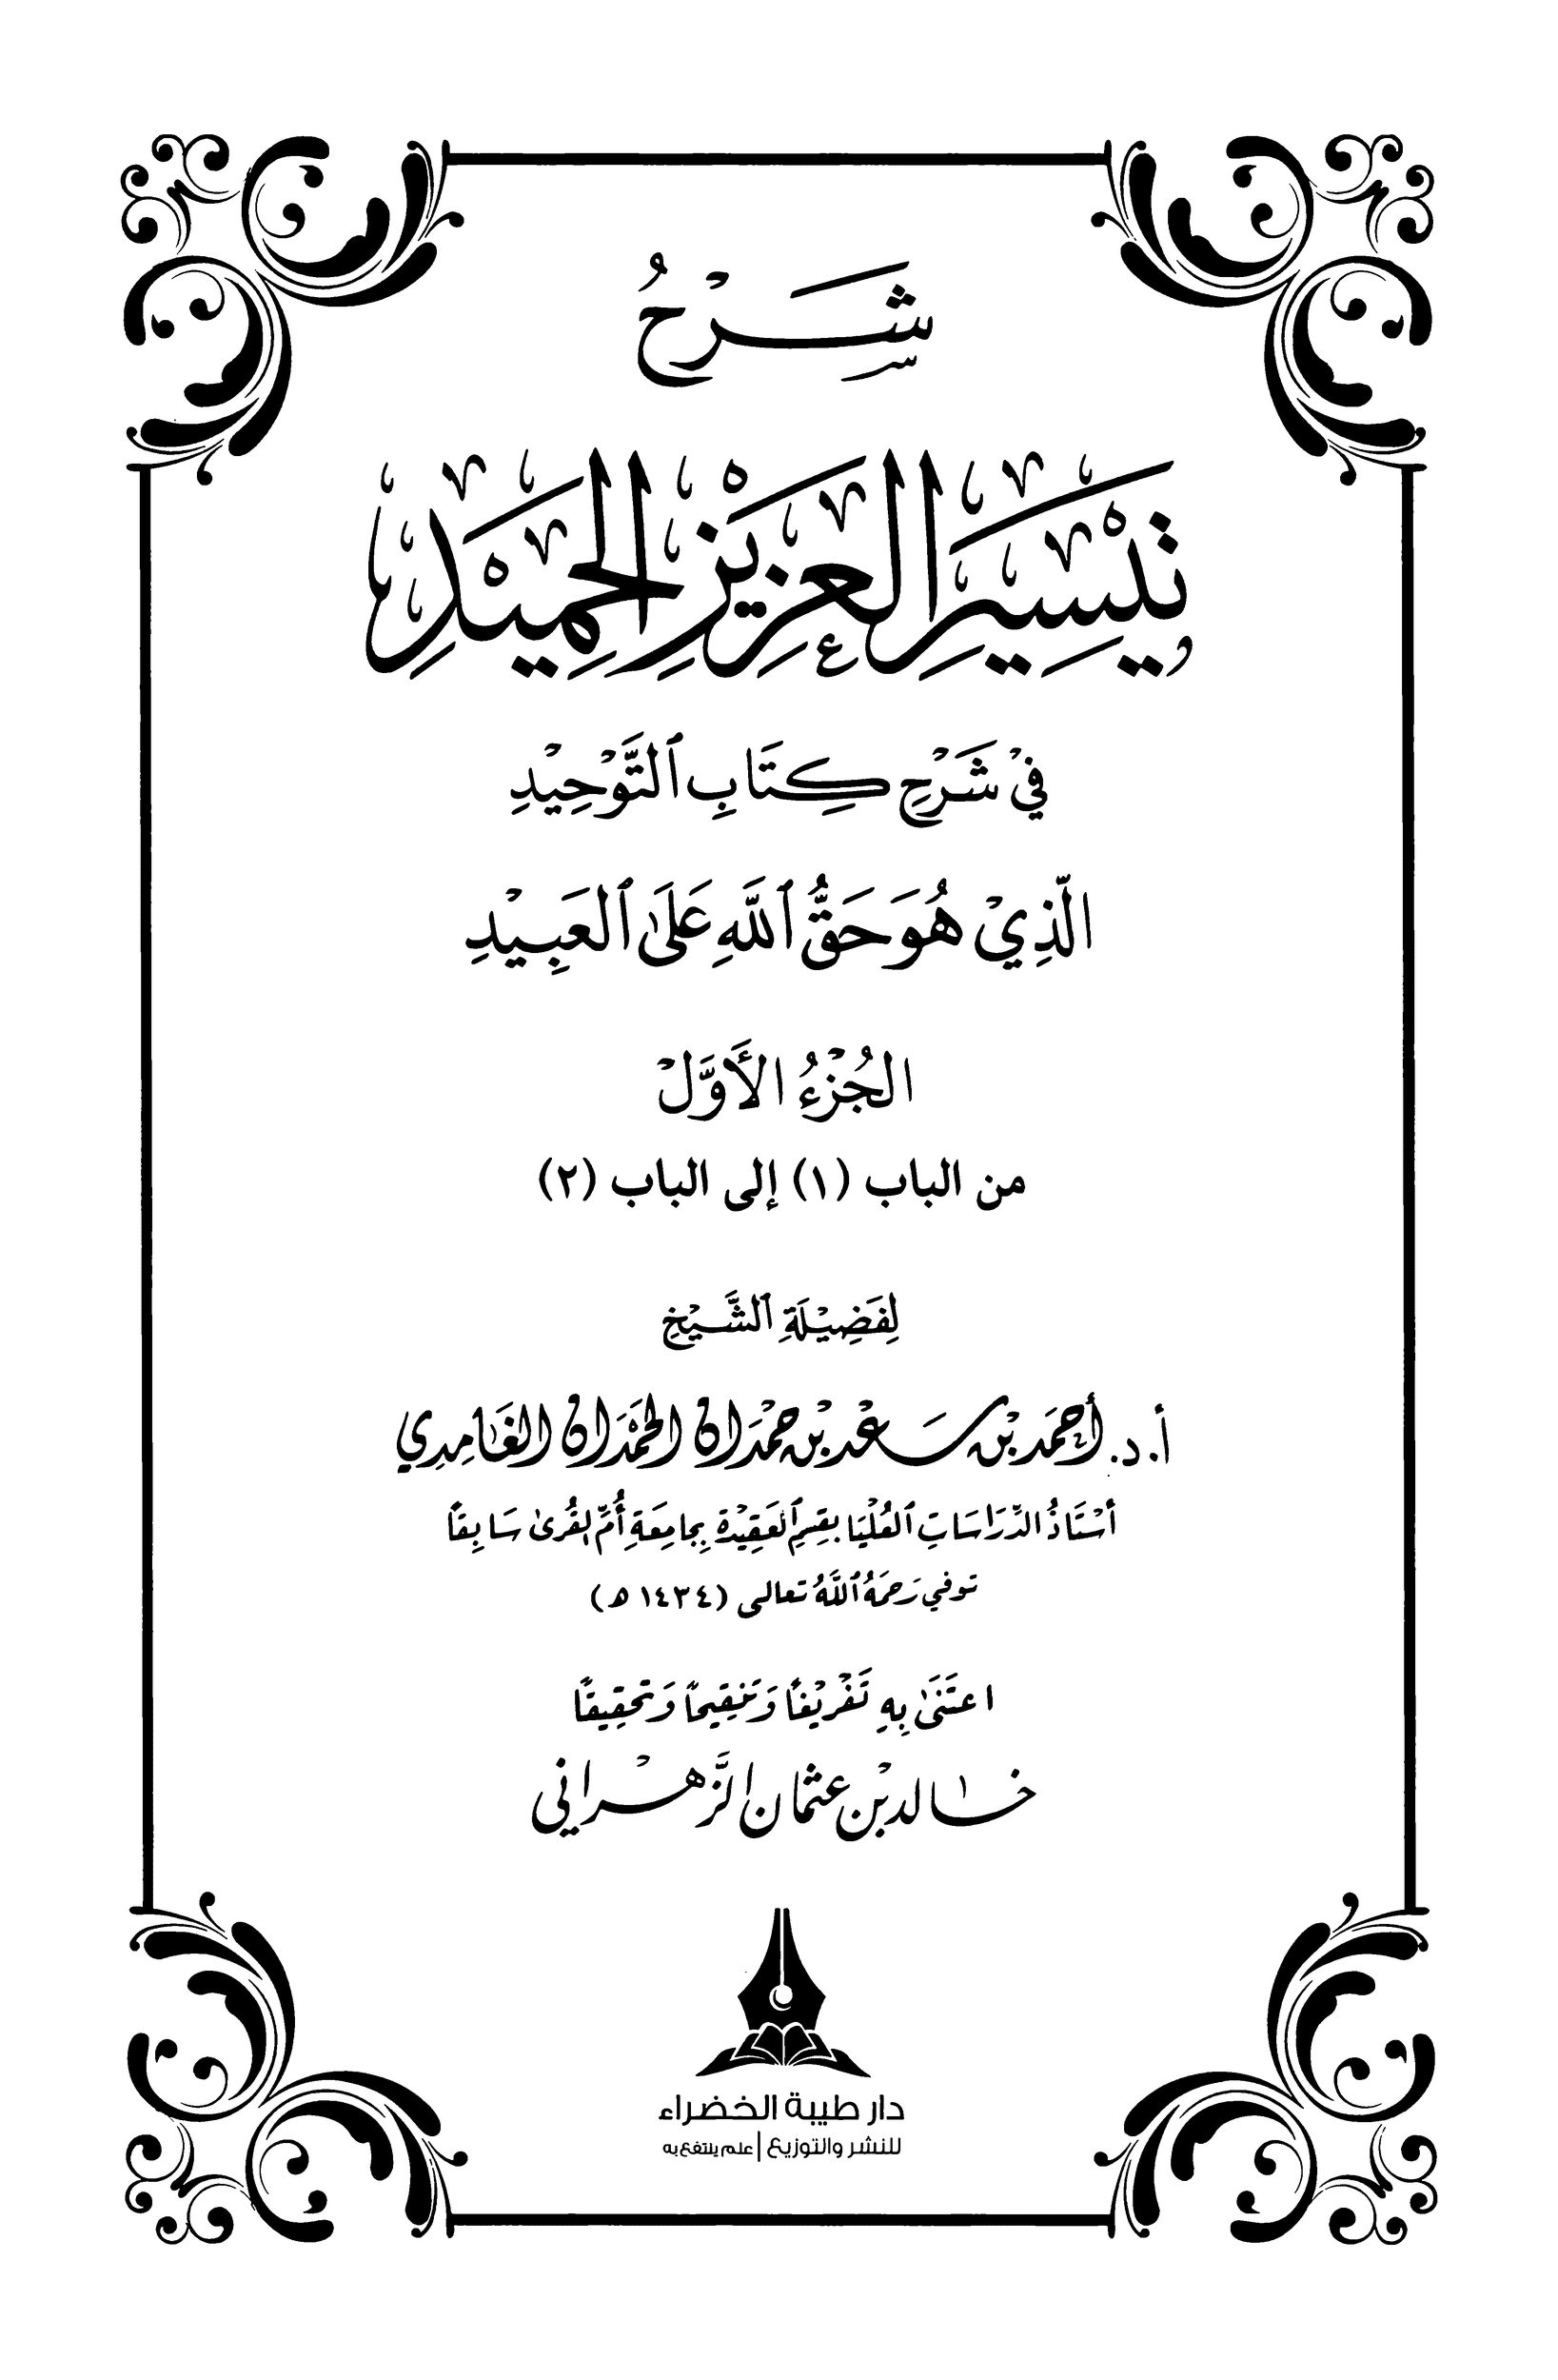 شَرْحُ
تَيْسِيْرِ الْعَزِيْزِ الْحَمِيْدِ
فِيْ شَرْحِ كِتَابِ ٱلتَّوْحِيْدِ
الَّذِيْ هُوَ حَقُّ ٱللَّهِ عَلَى ٱلعَبِيْدِ
الجُزْءُ الأَوَّلْ
من الباب (١) إلى الباب (٢)
لِفَضِيْلَةِ ٱلشَّيْخِ
أ. د. أَحْمَد بْن سَاعْد بْن حَمْدَان الحَمْدَان الغَامِدِي
أُسْتَاذُ الدِّرَاسَاتِ ٱلعُلْيَا بِقِسْمِ ٱلعَقِيْدَةِ بِجَامِعَةِ أُمِّ القُرَى سَابِقاً
توفي رَحِمَهُ ٱللَّهُ تعالى (١٤٣٤ هـ)
اعتَنَى بِهِ تَفْرِيْغاً وَتَنْقِيْحاً وَتَحْقِيقًا
خَالد بْن عثمان الزَّهْراني
دار طيبة الخضراء
للنشر والتوزيع | علم ينتفع به